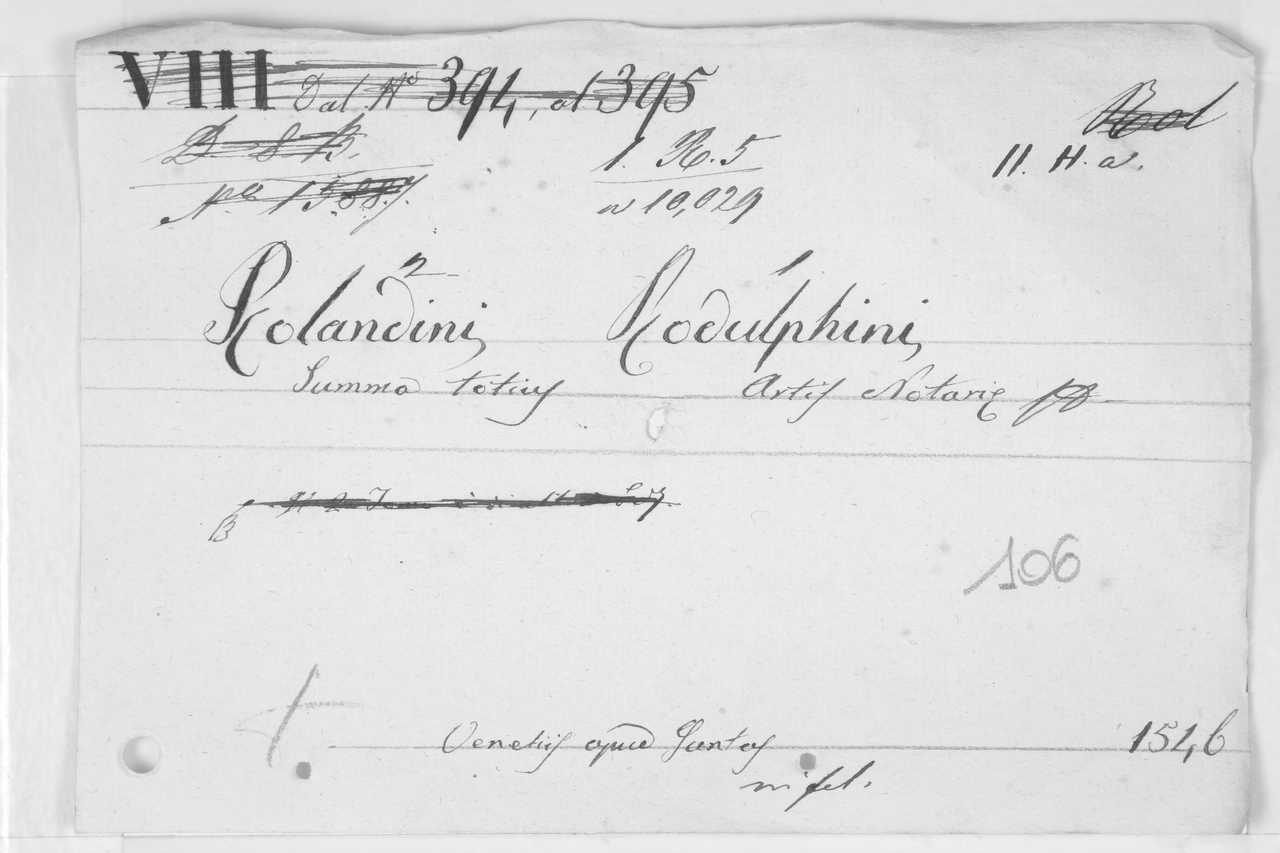 VIII Dal Nº 394, al 395
Rol
D. 8 B.
1. R. 5
11. H. a.
Nº 15887.
n 10,029
2 1
Rolandini, Rodulphini,
Summa totius Artis Notarie
B
106
Venetiis apud Juntas 1546
in fol.